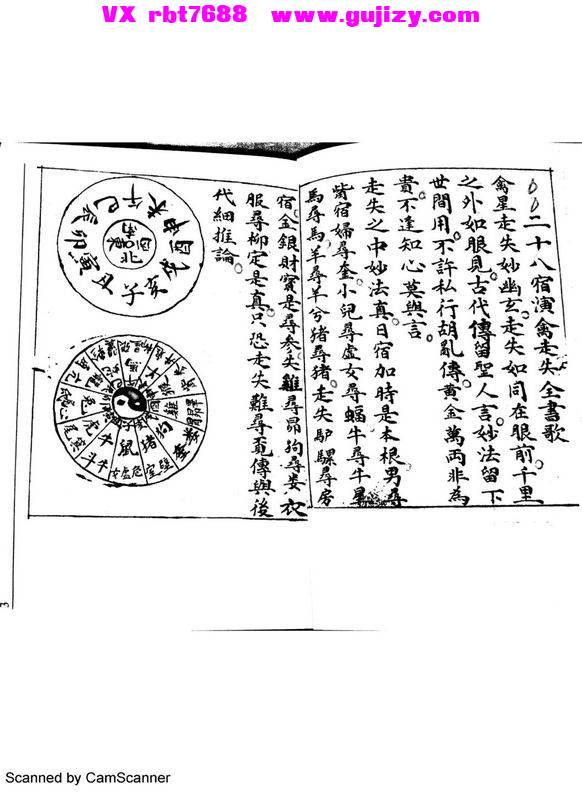 VX rbt7688 www.gujizy.com
二十八宿演禽走失全書歌
禽星走失妙幽玄走失如同在眼前千里
之外如眼見古代傳留聖人言妙法留下
世間用不許私行胡亂傳黃金萬両非為
貴不逢知心莫與言
走失之中妙法真日宿加時是本根男尋
觜宿婦尋奎小兒尋虛女尋蝠牛尋牛
馬尋馬羊尋羊兮猪尋猪走失馿騾尋房
宿金銀財寳是尋参失雞尋昴狗尋娄衣
服尋柳定是真只恐走失難尋覓傳與後
代細推論
午未申酉戌亥子丑寅卯辰巳
南
北
鼠
牛
虎
兔
狗
猪
女虛危
室壁
斗牛
3
Scanned by CamScanner